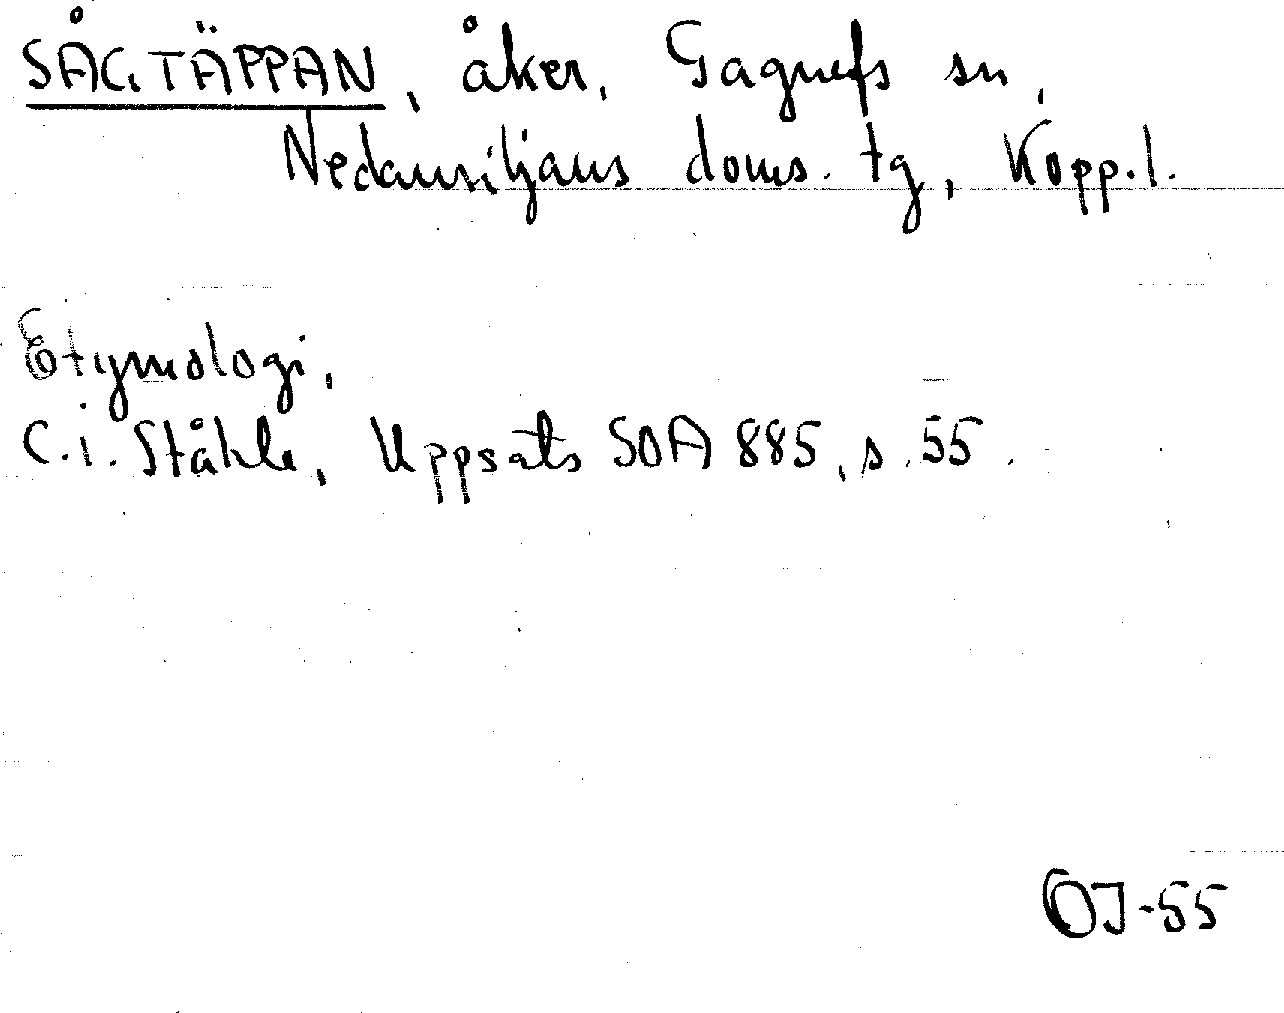 SÅGTÄPPAN, åker, Gagnefs sn,
Nedansiljans doms. tg, Kopp.l.
Etymologi,
C.I. Ståhle, Uppsats SOA 885, s. 55.
OJ-55